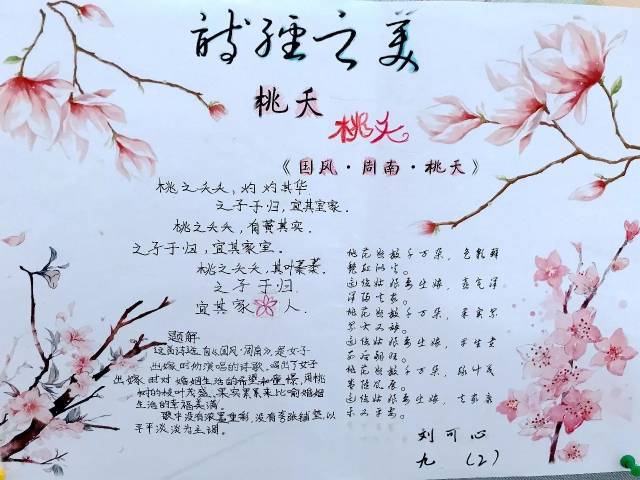 诗经之美
桃夭
桃夭
《国风·周南·桃夭》
桃之夭夭，灼灼其华
之子于归，宜其室家．
桃之夭夭，有蕡其实．
之子于归，宜其家室．
桃之夭夭，其叶蓁蓁．
之子于归
宜其家人．
题解
这首诗选自《国风·周南》，是女子
出嫁时所演唱的诗歌，唱出了女子
出嫁时对婚姻生活的希望和憧憬，用桃
树的枝叶茂盛、果实累累来比喻婚姻
生活的幸福美满．
歌中没有浓墨重彩，没有夸张铺垫，以
平平淡淡为主调．
桃花怒放千万朵，色彩鲜
艳红似火．
这位姑娘要出嫁，喜气洋
洋归夫家．
桃花怒放千万朵，果实累
累大又多．
这位姑娘要出嫁，早生贵
子后嗣旺．
桃花怒放千万朵，绿叶茂
盛随风展．
这位姑娘要出嫁，夫家康
乐又平安．
刘可心
九（2）